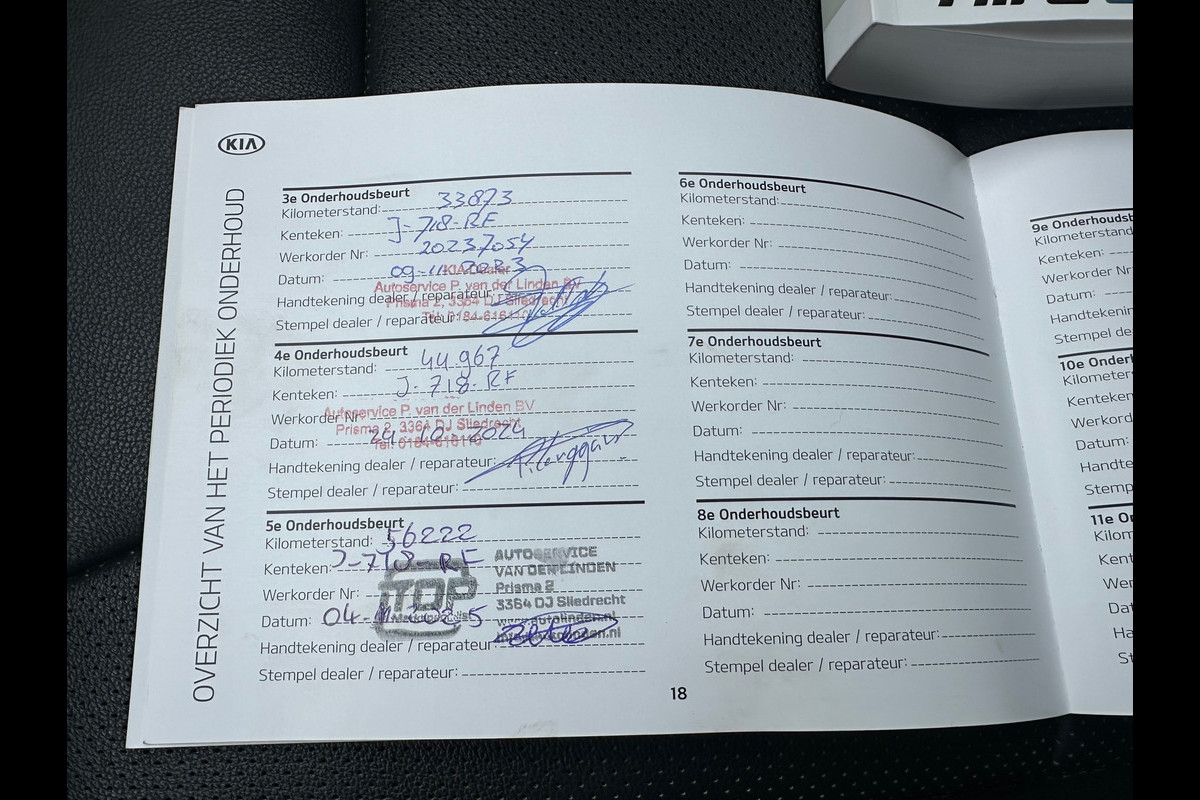 KIA
OVERZICHT VAN HET PERIODIEK ONDERHOUD
3e Onderhoudsbeurt
Kilometerstand: 33873
Kenteken: J-718-RF
Werkorder Nr: 20237054
Datum: 09-11-2023
KIA Dealer
Autoservice P. van der Linden BV
Handtekening dealer / reparateur:
Prisma 2, 3364 DJ Sliedrecht
Stempel dealer / reparateur:
Tel. 0184-616110
4e Onderhoudsbeurt
Kilometerstand: 44.967
Kenteken: J-718-RF
Werkorder Nr:
Autoservice P. van der Linden BV
Prisma 2, 3364 DJ Sliedrecht
Datum: 29-10-2024
Tel. 0184-616110
Handtekening dealer / reparateur:
Stempel dealer / reparateur:
5e Onderhoudsbeurt
Kilometerstand: 56222
Kenteken: J-718-RF
Werkorder Nr:
Datum: 04-11-2025
TOP
AUTOSERVICE
VAN DER LINDEN
Prisma 2
3364 DJ Sliedrecht
www.autolinden.nl
Handtekening dealer / reparateur:
Stempel dealer / reparateur:
6e Onderhoudsbeurt
Kilometerstand:
Kenteken:
Werkorder Nr:
Datum:
Handtekening dealer / reparateur:
Stempel dealer / reparateur:
7e Onderhoudsbeurt
Kilometerstand:
Kenteken:
Werkorder Nr:
Datum:
Handtekening dealer / reparateur:
Stempel dealer / reparateur:
8e Onderhoudsbeurt
Kilometerstand:
Kenteken:
Werkorder Nr:
Datum:
Handtekening dealer / reparateur:
Stempel dealer / reparateur:
18
9e Onderhoudsb
Kilometerstand:
Kenteken:
Werkorder Nr
Datum:
Handtekenin
Stempel de
10e Onderh
Kilometer
Kenteken
Werkord
Datum:
Handte
Stemp
11e O
Kilom
Kent
Wer
Dat
Ha
St